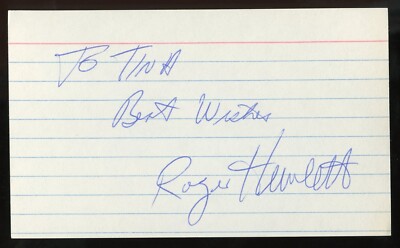 To TINA
Best Wishes
Roger Hewlett